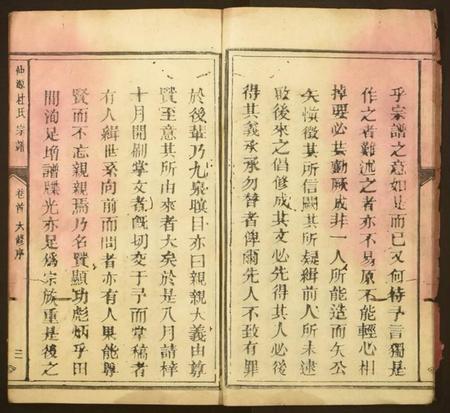 乎宗譜之意如是而已又何待予言獨是
作之者難述之者亦不易原不能輕心相
掉要必其動厥成非一人所能造而矢公
矢慎徵其所信闕其所疑緝前人所未逮
啟後來之倡修成其文必先得其人必後
得其義承承勿替者俾爾先人不致有罪
於後輩乃九泉瞑目亦曰親親大義由尊
賢至意其所由來者大矣於是八月請梓
十月開刷掌文者既切委于予而掌稿者
有人緝世系向前而問者亦有人果能尊
賢而不忘親親焉乃名賢顯功彪炳乎田
間洵足增譜牒光亦足為宗族重是後之
仙源杜氏宗譜
卷首 大修序
三